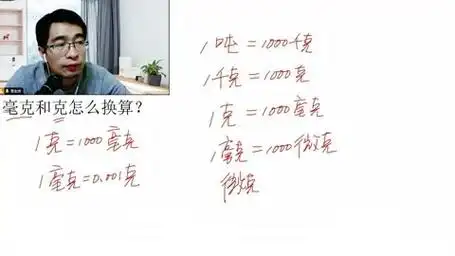 毫克和克怎么换算？
1克=1000毫克
1毫克=0.001克
1吨=1000千克
1千克=1000克
1克=1000毫克
1毫克=1000微克
微克